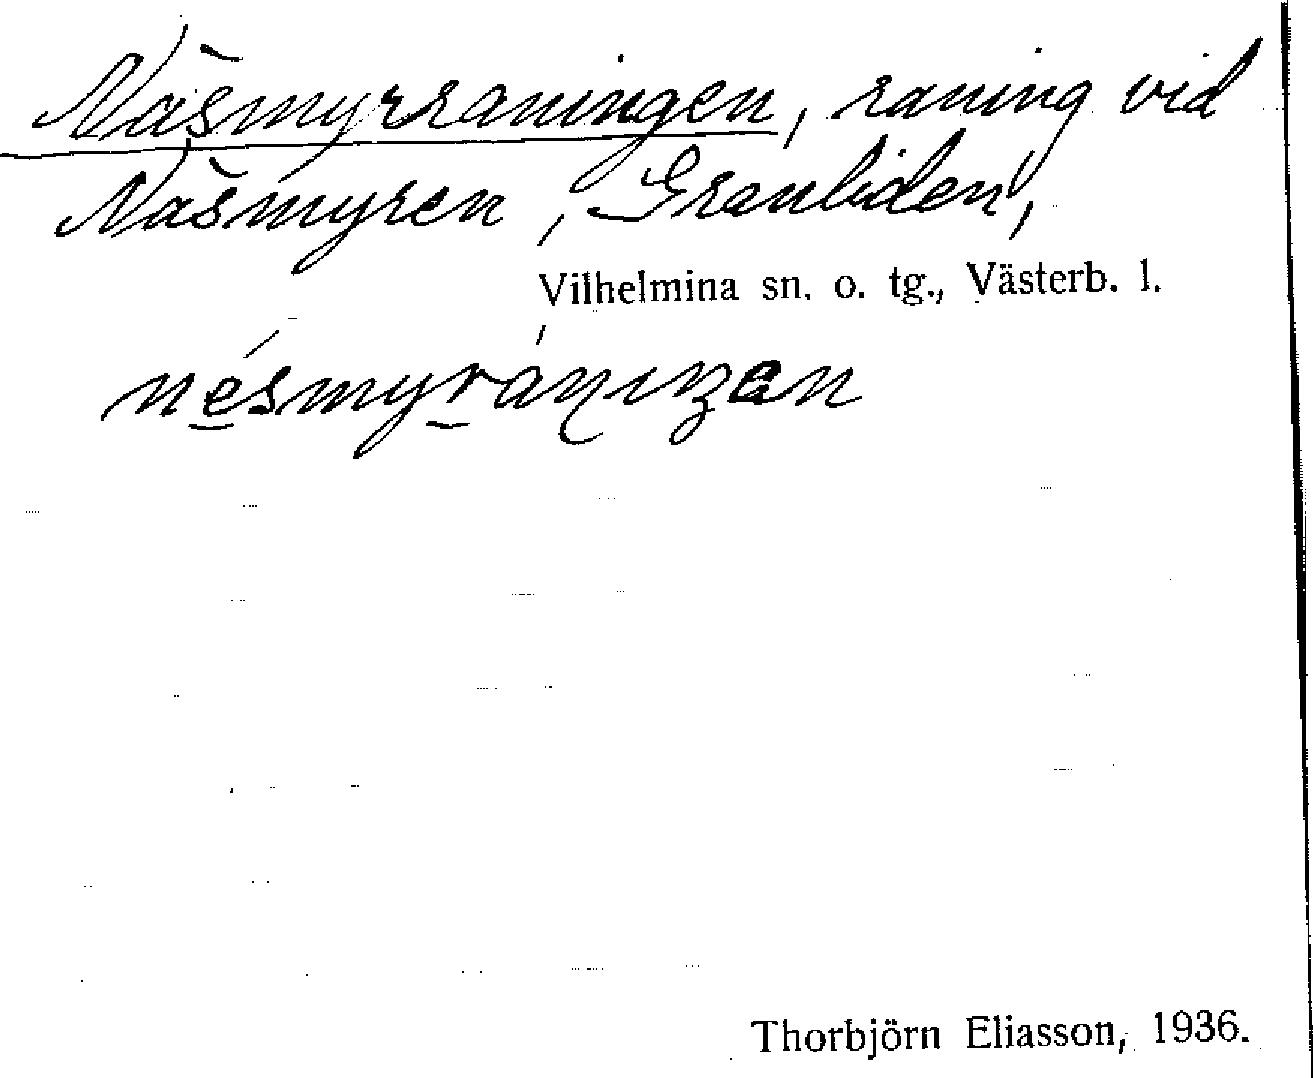 Näsmyrraningen, raning vid
Näsmyren, Granliden,
Vilhelmina sn. o. tg., Västerb. l.
Thorbjörn Eliasson, 1936.